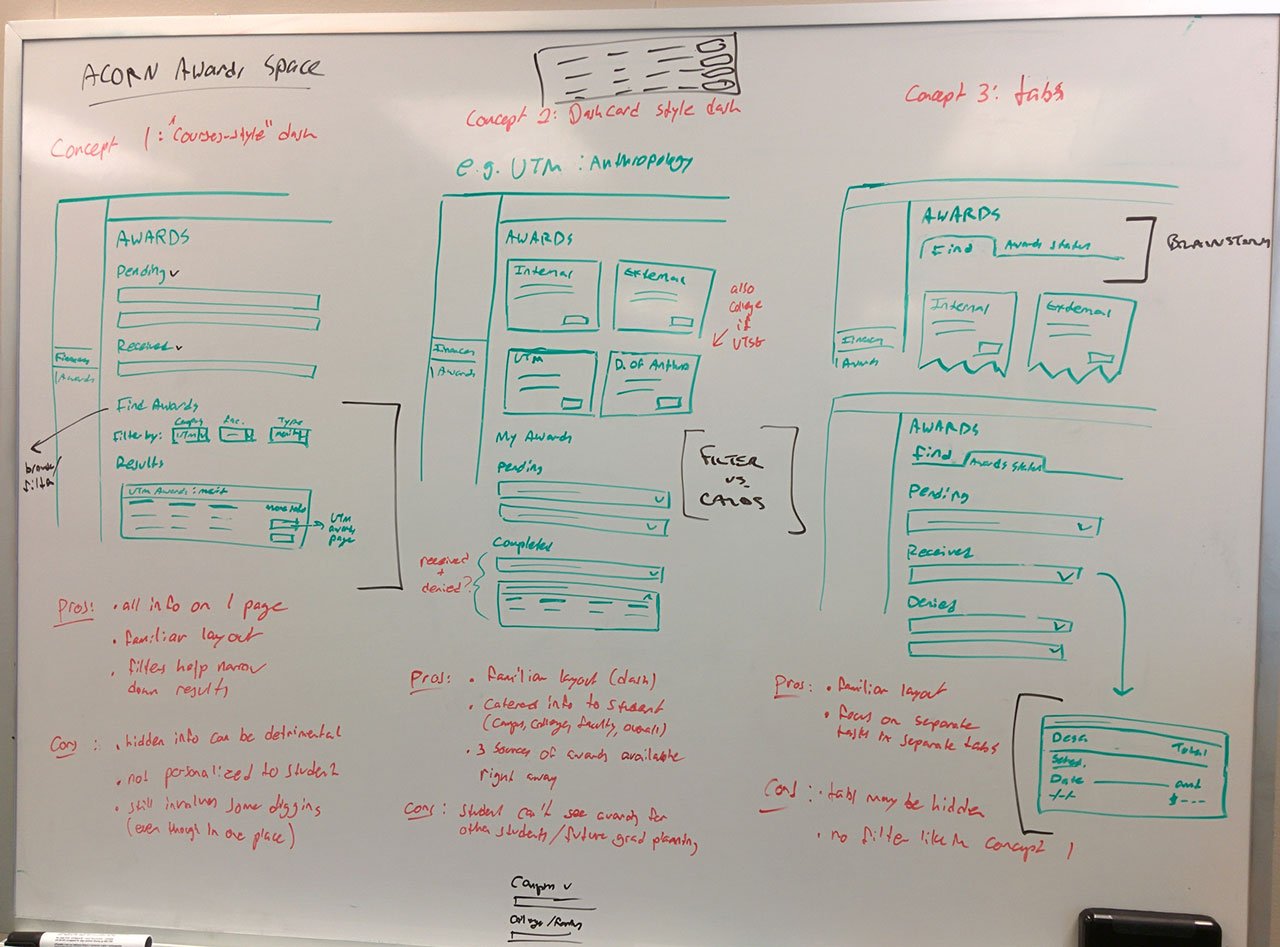 ACORN Awards Space
Concept 1: "Courses-style" dash
AWARDS
Pending
Received
Finances
Awards
Find Awards
Filter by:
Campus
UTM
Fac.
Type
merit
browse/
filter
Results
UTM Awards: merit
more info
UTM
awards
page
Pros: • all info on 1 page
• familiar layout
• filters help narrow
down results
Cons: • hidden info can be detrimental
• not personalized to student
• still involves some digging
(even though in one place)
Concept 2: Dashcard style dash
e.g. UTM: Anthropology
AWARDS
Internal
External
also
college
if
UTSG
UTM
D. of Anthro
Finances
Awards
My Awards
Pending
Completed
received
+
denied?
FILTER
vs.
CARDS
Pros: • familiar layout (dash)
• catered info to student
(campus, college, faculty, overall)
• 3 sources of awards available
right away
Cons: student can't see awards for
other students/future grad planning
Campus
College/Faculty
Concept 3: tabs
AWARDS
Find
Awards Status
BRAINSTORM
Internal
External
Finances
Awards
AWARDS
Find
Awards Status
Pending
Received
Denied
Pros: • familiar layout
• focus on separate
tasks in separate tabs
Cons: • tabs may be hidden
• no filter like in concept 1
Desc.
Total
Sched.
Date
amt
-/-/-
$---